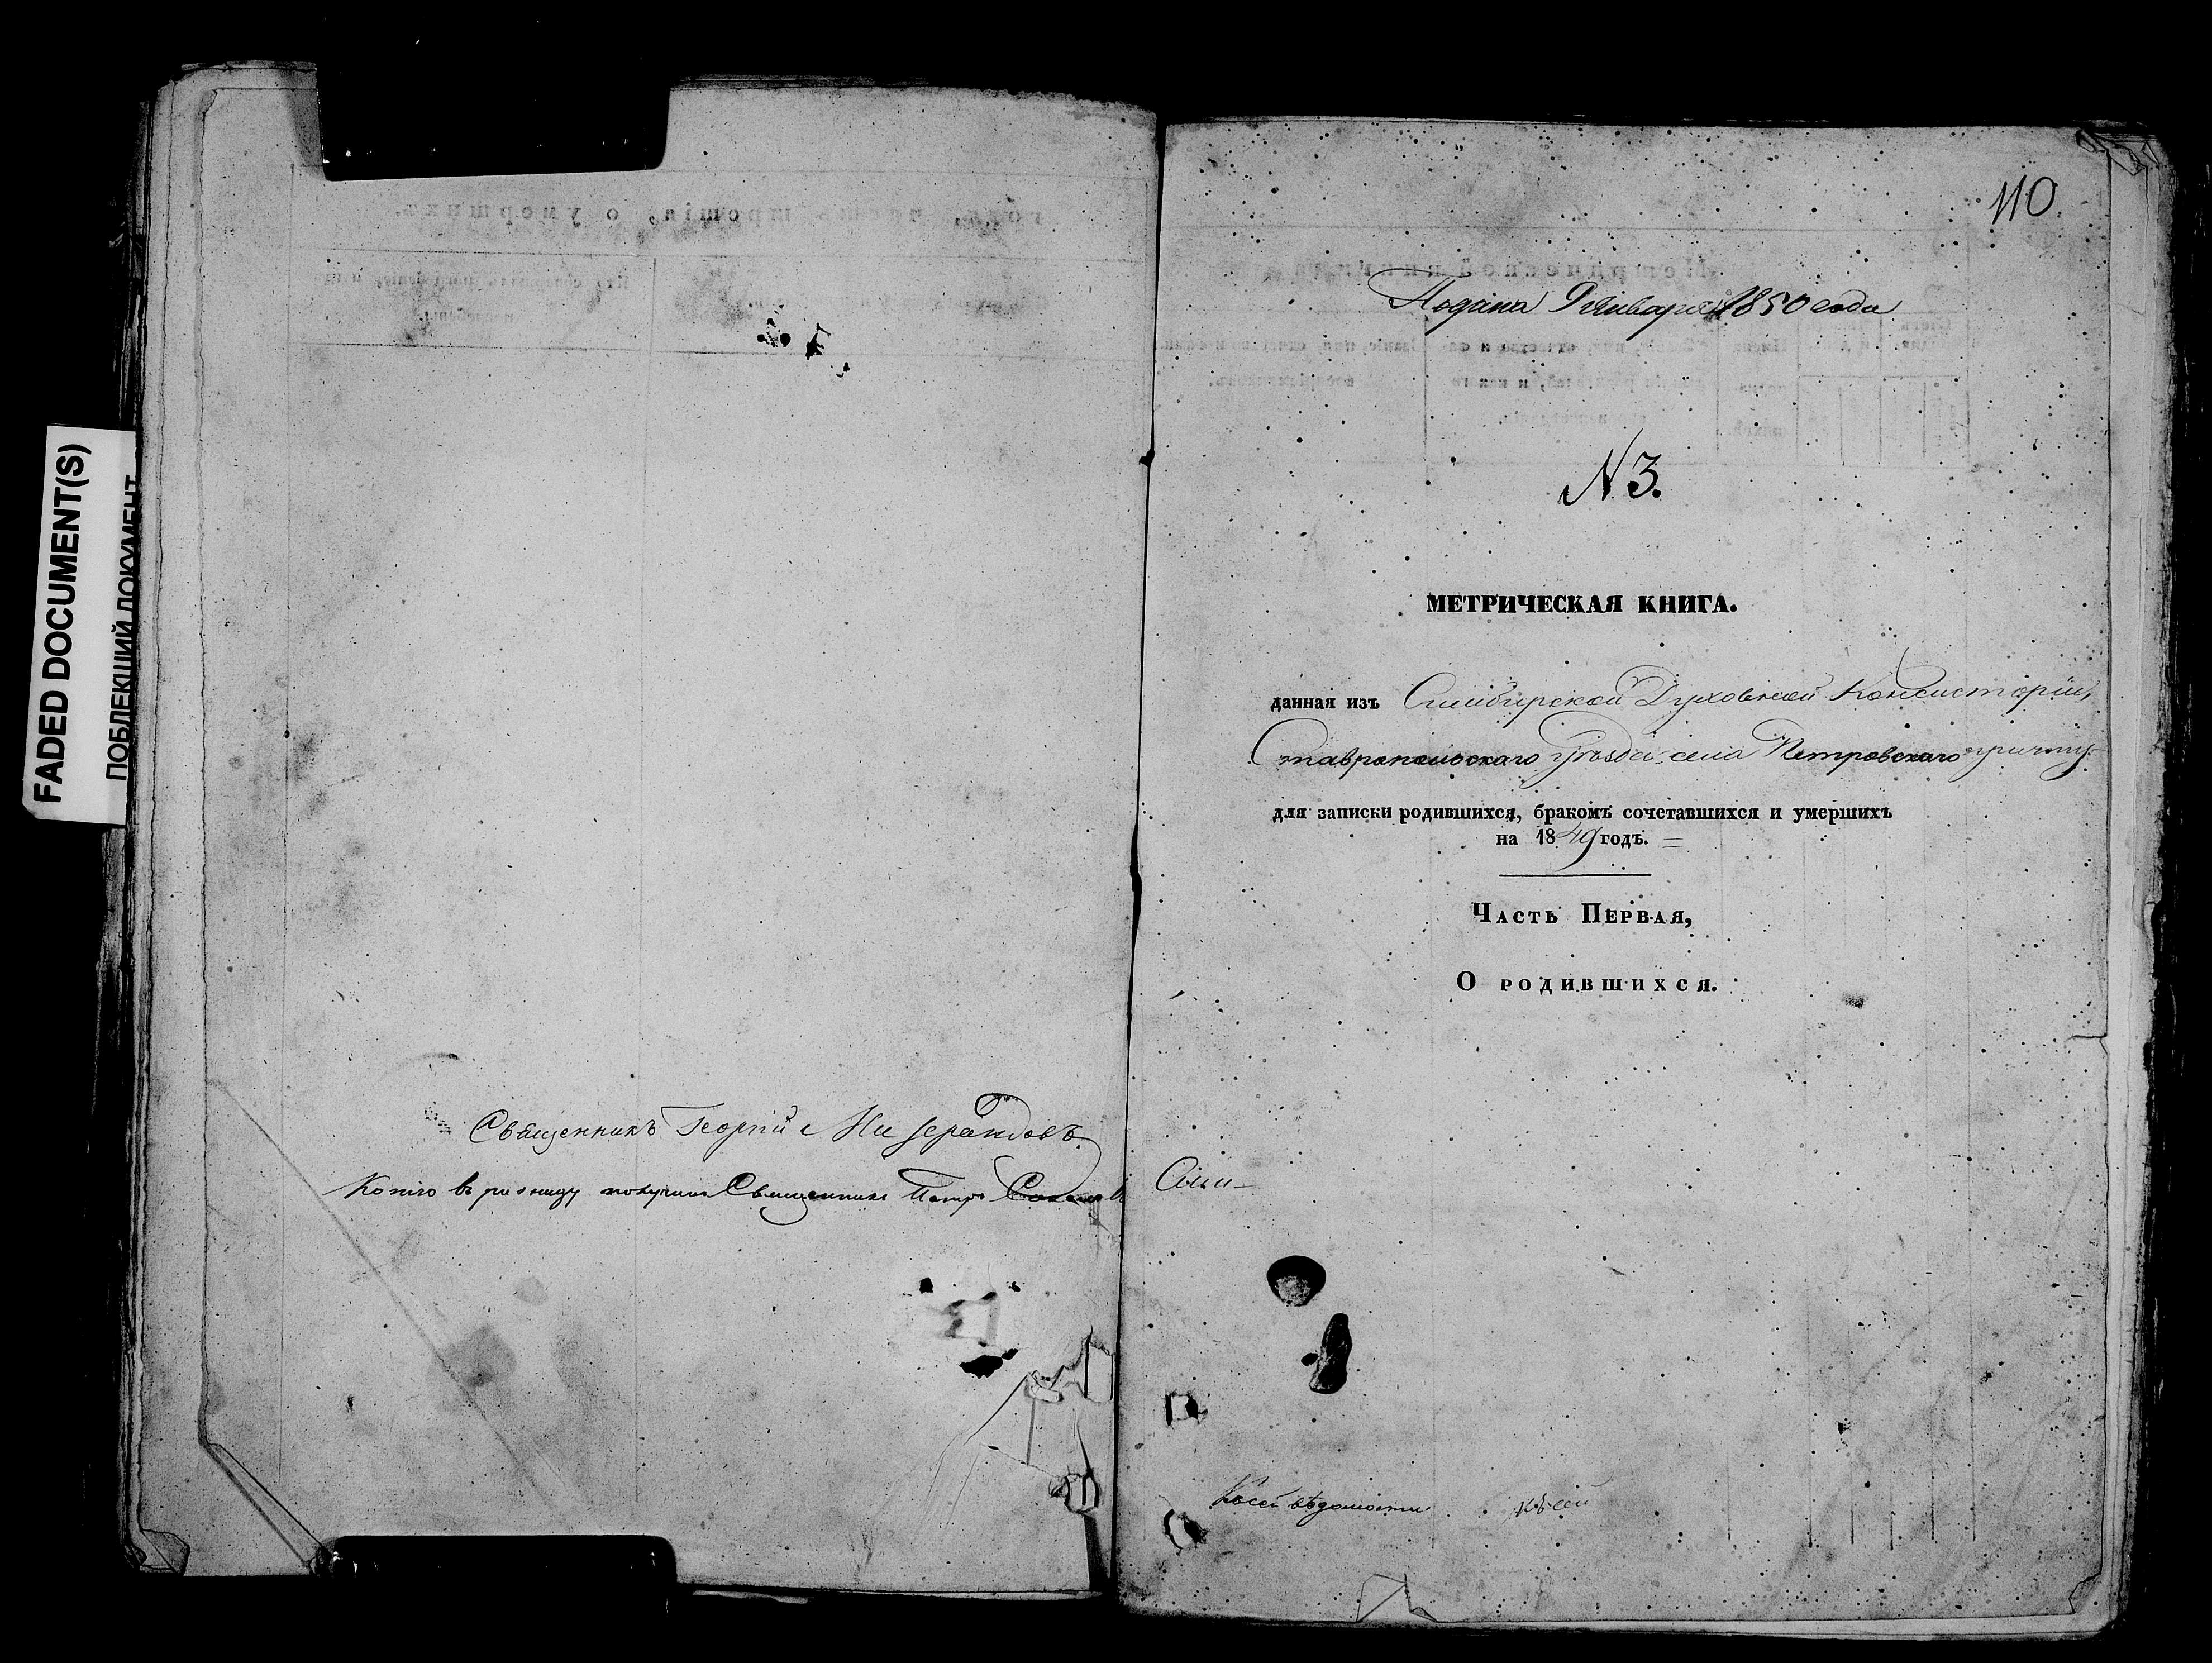 FADED DOCUMENT(S)
ПОБЛЕКШИЙ ДОКУМЕНТ
Священникъ Георгій
Копію въ получилъ Священникъ Петръ
110
Подана 9 Января 1850 года
N 3.
МЕТРИЧЕСКАЯ КНИГА.
данная изъ Симбирской Духовной Консисторіи,
Ставропольскаго уѣзда, села Петровскаго причту
для записки родившихся, бракомъ сочетавшихся и умершихъ
на 1849 годъ.
Часть Первая,
О родившихся.
Къ сей вѣдомости къ сей